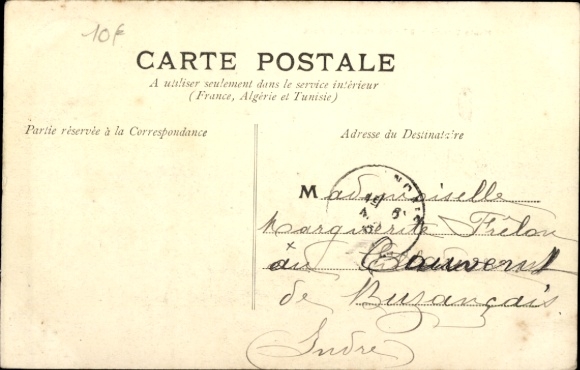 10 f
CARTE POSTALE
A utiliser seulement dans le service intérieur
(France, Algérie et Tunisie)
Partie réservée à la Correspondance
Adresse du Destinataire
Mademoiselle
Marguerite Frélon
au
de Buzançais
Indre